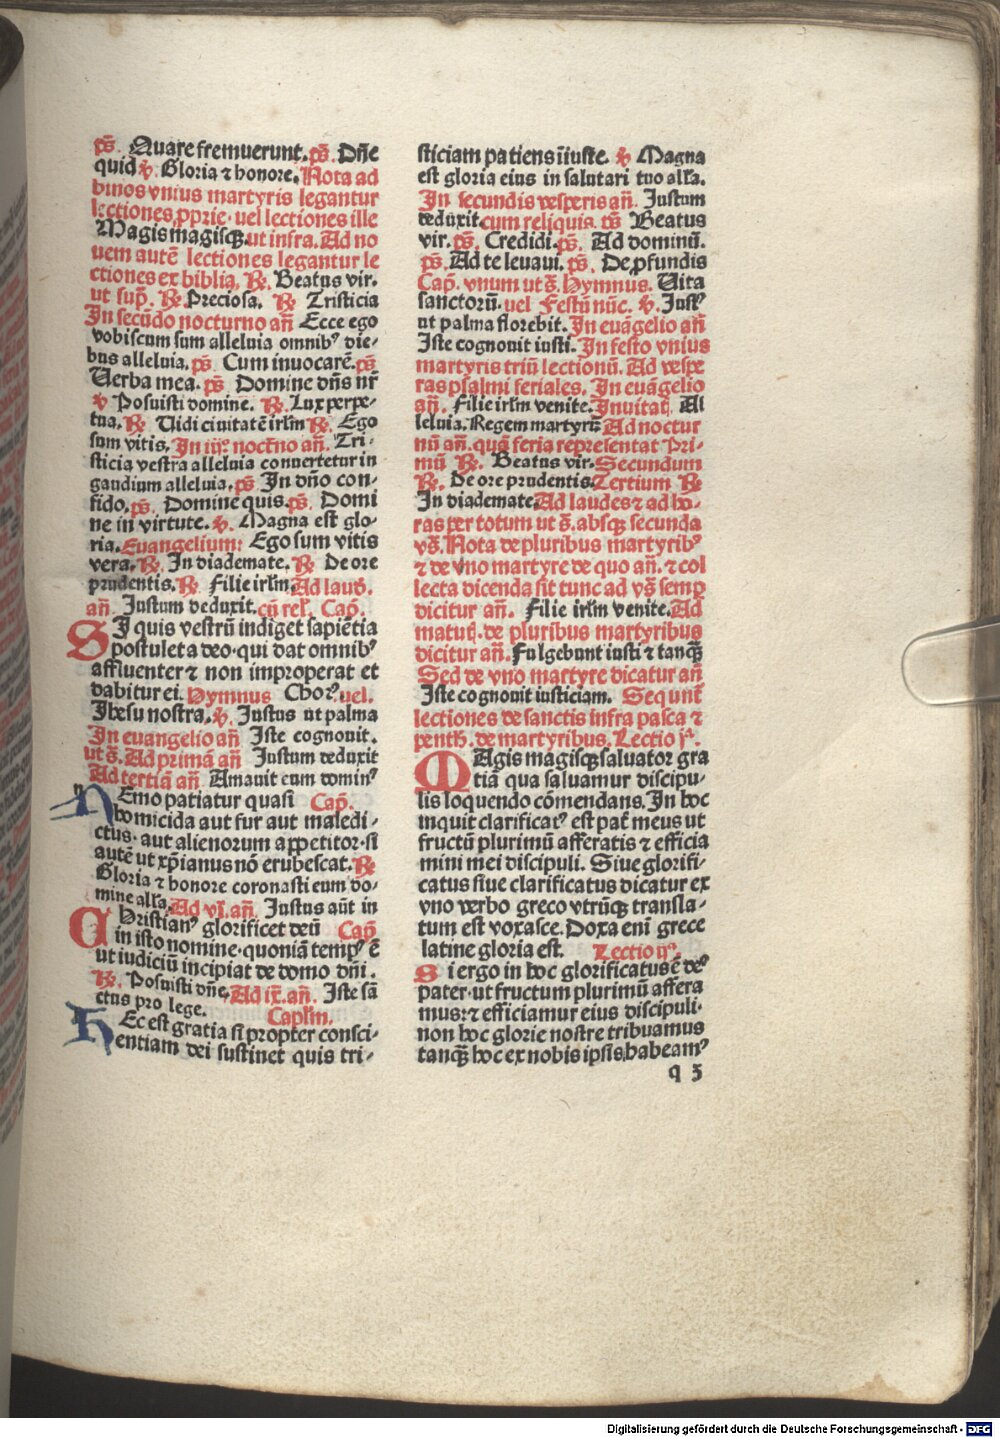 ps̄. Quare fremuerunt. ps̄. Dn̄e
quid ℣. Gloria ⁊ honore. Nota ad
binos vnius martyris legantur
lectiones ꝓprie. vel lectiones ille
Magis magisqꝫ. ut infra. Ad no
uem autē lectiones legantur le
ctiones ex biblia. ℞. Beatus vir.
ut sup̄. ℞ Preciosa. ℞ Tristicia
In secūdo nocturno an̄ Ecce ego
vobiscum sum alleluia omnibꝰ die-
bus alleluia. ps̄. Cum inuocarē. ps̄
Verba mea. ps̄ Domine dn̄s nr̄
℣ Posuisti domine. ℞. Lux perpe-
tua. ℞ Uidi ciuitatē irlm̄ ℞. Ego
sum vitis. In iijº noct̄no an̄. Tri-
sticia vestra alleluia conuertetur in
gaudium alleluia. ps̄ In dn̄o con-
fido. ps̄. Domine quis. ps̄. Domi
ne in virtute. ℣. Magna est glo-
ria. Euangelium: Ego sum vitis
vera. ℞. In diademate. ℞ De ore
prudentis. ℞ Filie irlm̄. Ad laud̄.
an̄. Justum deduxit. cū rel̄. Cap̄.
SI quis vestrū indiget sapiētia
postulet a deo. qui dat omnibꝰ
affluenter ⁊ non improperat et
dabitur ei. Hymnus Chorꝰ. uel.
Jhesu nostra. ℣. Justus ut palma
In euangelio an̄ Iste cognouit.
ut s̄. Ad primā an̄ Justum deduxit
Ad tertiā an̄ Amauit eum dominꝰ
NEmo patiatur quasi Cap̄.
homicida aut fur aut maledi-
ctus. aut alienorum appetitor. si
autē ut xp̄ianus nō erubescat. ℞
Gloria ⁊ honore coronasti eum do-
mine all̄a. Ad vi. an̄. Justus aūt in
CHristianꝰ glorificet deū Cap̄
in isto nomine. quoniā tempꝰ ē
ut iudiciū incipiat de domo dn̄i.
℞. Posuisti dn̄e. Ad ix. an̄. Iste sā
ctus pro lege. Caplm̄.
HEc est gratia si propter consci-
entiam dei sustinet quis tri-
sticiam patiens iīuste. ℣ Magna
est gloria eius in salutari tuo all̄a.
In secundis vesperis an̄. Justum
deduxit. cum reliquis. ps̄ Beatus
vir. ps̄. Credidi. ps̄. Ad dominū.
ps̄. Ad te leuaui. ps̄. De ꝓfundis
Cap̄. vnum ut s̄. Hymnus. Vita
sanctorū. uel Festū nūc. ℣. Justꝰ
ut palma florebit. In euāgelio an̄
Iste cognouit iusti. In festo vnius
martyris triū lectionū. Ad vespe
ras psalmi feriales. In euāgelio
an̄. Filie irlm̄ venite. Inuitat̄. Al
leluia. Regem martyrū Ad noctur
nū an̄. quā feria representat Pri-
mū ℞. Beatus vir. Secundum
℞. De ore prudentis. Tertium ℞
In diademate. Ad laudes ⁊ ad ho-
ras per totum ut s̄. absqꝫ secunda
vs̄. Nota de pluribus martyribꝰ
⁊ de vno martyre de quo an̄. ⁊ col
lecta dicenda sit tunc ad vs̄ semp̄
dicitur an̄. Filie irlm̄ venite. Ad
matut̄. de pluribus martyribus
dicitur an̄. Fulgebunt iusti ⁊ tanqꝫ
Sed de vno martyre dicatur an̄
Iste cognouit iusticiam. Sequnt̄
lectiones de sanctis infra pasca ⁊
penth̄. de martyribus. Lectio jª.
MAgis magisqꝫ saluator gra
tiā qua saluamur discipu-
lis loquendo cōmendans. In hoc
inquit clarificatꝰ est pat̄ meus ut
fructū plurimū afferatis ⁊ efficia
mini mei discipuli. Siue glorifi-
catus siue clarificatus dicatur ex
vno verbo greco vtrūqꝫ transla-
tum est voxasce. Doxa eni̅ grece
latine gloria est. Lectio ijª.
Si ergo in hoc glorificatus ē deꝰ
pater. ut fructum plurimū affera
mus: ⁊ efficiamur eius discipuli-
non hoc glorie nostre tribuamus
tanqꝫ hoc ex nobis ipsis habeamꝰ
q 5
Digitalisierung gefördert durch die Deutsche Forschungsgemeinschaft - DFG